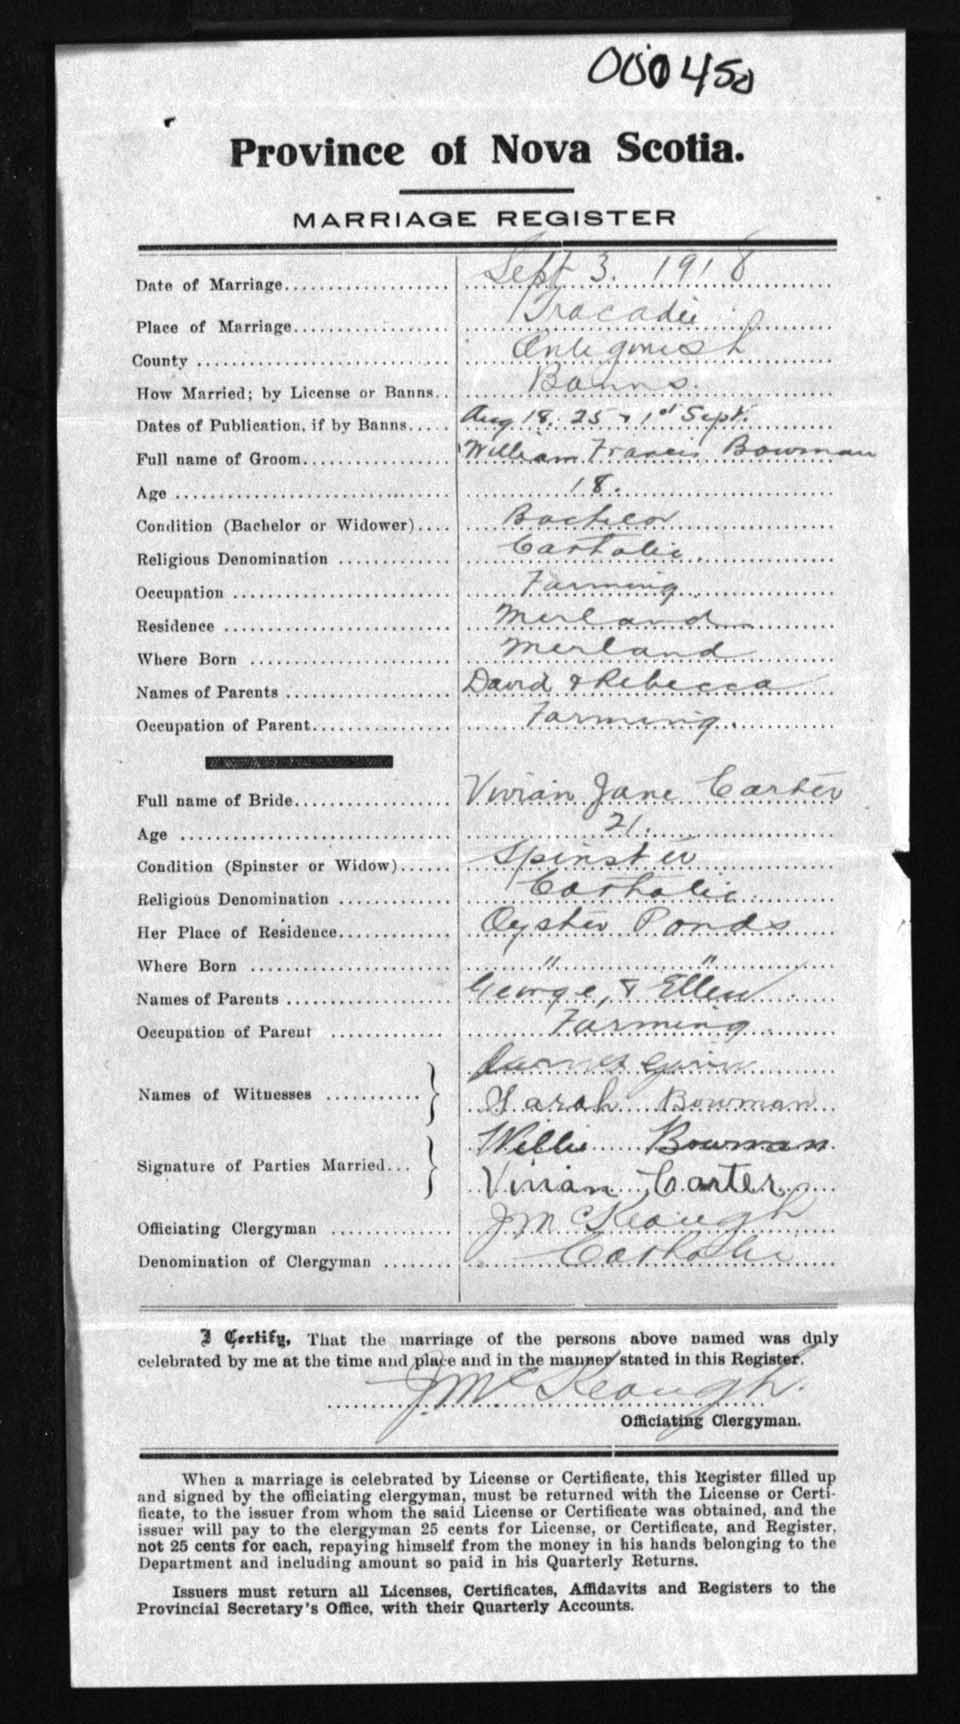 000450
Province of Nova Scotia.
MARRIAGE REGISTER
Date of Marriage Sept 3. 1918
Place of Marriage Tracadie
County Antigonish
How Married; by License or Banns Banns.
Dates of Publication, if by Banns Aug 18. 25 & 1st Sept.
Full name of Groom William Francis Bowman
Age 18.
Condition (Bachelor or Widower) Bachelor
Religious Denomination Catholic
Occupation Farming
Residence Merland
Where Born Merland
Names of Parents David & Rebecca
Occupation of Parent Farming.
Full name of Bride Vivian Jane Carter
Age 21.
Condition (Spinster or Widow) Spinster
Religious Denomination Catholic
Her Place of Residence Oyster Ponds
Where Born " "
Names of Parents George, & Ellen
Occupation of Parent Farming
Names of Witnesses
Sarah Bowman
Signature of Parties Married Willie Bowman
Vivian Carter
Officiating Clergyman J McKeough
Denomination of Clergyman Catholic
I Certify, That the marriage of the persons above named was duly
celebrated by me at the time and place and in the manner stated in this Register.
J. McKeough.
Officiating Clergyman.
When a marriage is celebrated by License or Certificate, this Register filled up
and signed by the officiating clergyman, must be returned with the License or Certi-
ficate, to the issuer from whom the said License or Certificate was obtained, and the
issuer will pay to the clergyman 25 cents for License, or Certificate, and Register,
not 25 cents for each, repaying himself from the money in his hands belonging to the
Department and including amount so paid in his Quarterly Returns.
Issuers must return all Licenses, Certificates, Affidavits and Registers to the
Provincial Secretary's Office, with their Quarterly Accounts.